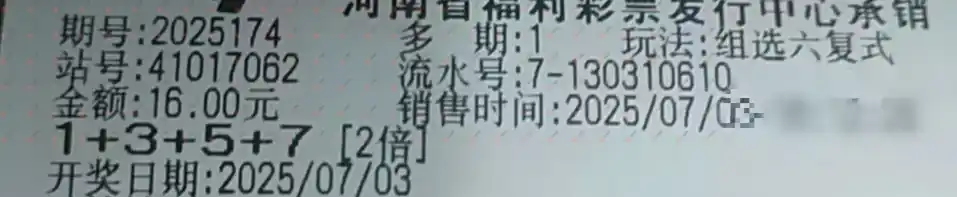 河南省福利彩票发行中心承销
期号:2025174 多 期:1 玩法:组选六复式
站号:41017062 流水号:7-130310610
金额:16.00元 销售时间:2025/07/03-
1+3+5+7 [2倍]
开奖日期:2025/07/03